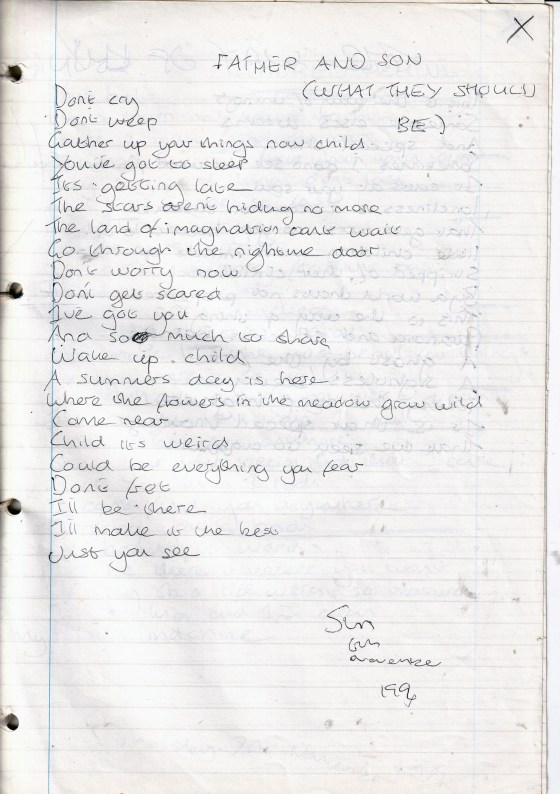 X
FATHER AND SON
(WHAT THEY SHOULD
BE)
Dont cry
Dont weep
Gather up your things now child
You've got to sleep
Its getting late
The stars arent hiding no more
The land of imagination cant wait
Go through the nightime door
Dont worry now
Dont get scared
I've got you
And so much to share
Wake up child
A summers day is here
Where the flowers in the meadow grow wild
Come near
Child its weird
Could be everything you fear
Dont fret
I'll be there
I'll make it the best
Just you see
Sun
6th
199